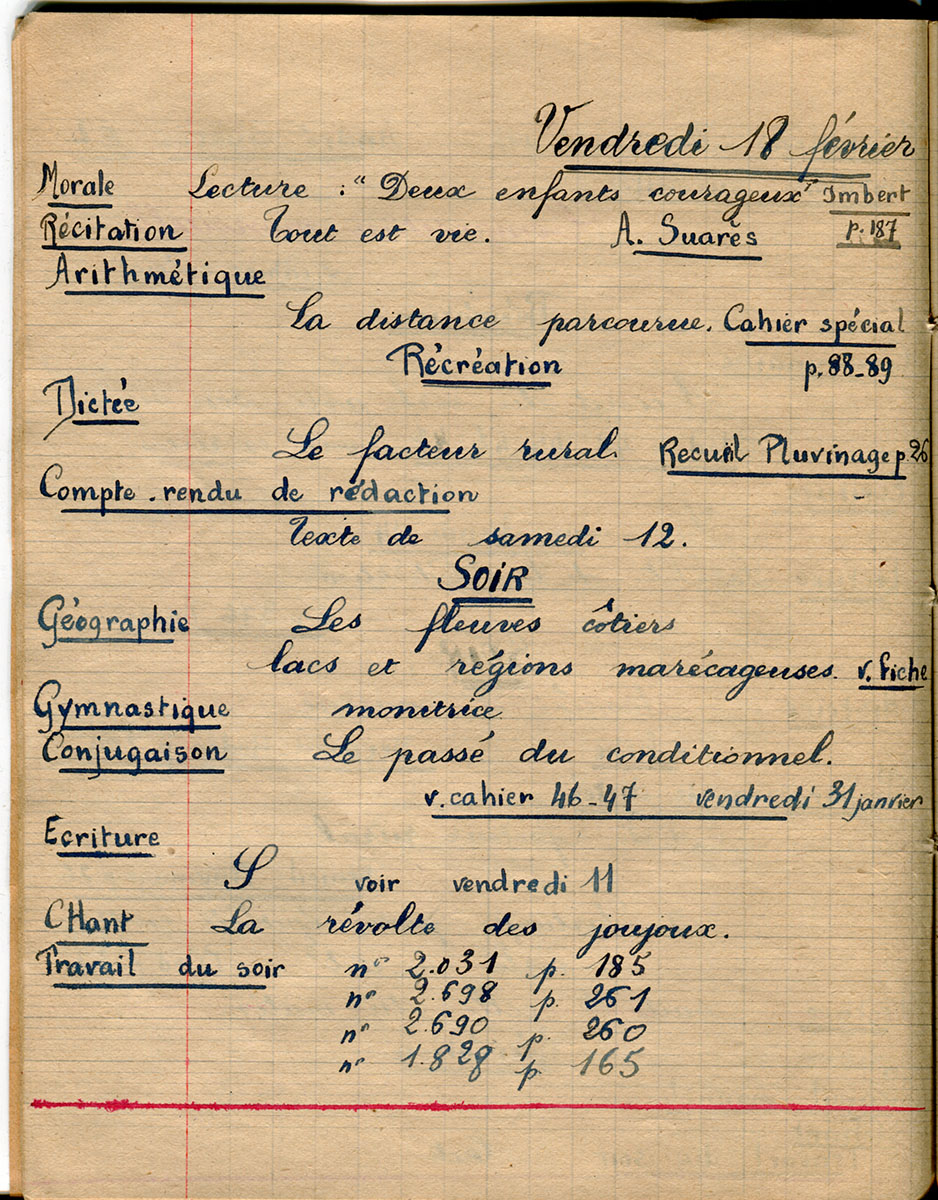 Vendredi 18 février
Morale Lecture : "Deux enfants courageux" Imbert
Récitation Tout est vie. A. Suarès p. 187
Arithmétique
La distance parcourue. Cahier spécial
Récréation p. 88-89
Dictée
Le facteur rural. Recueil Pluvinage p. 26
Compte-rendu de rédaction
Texte de samedi 12.
SOIR
Géographie Les fleuves côtiers
lacs et régions marécageuses. v. fiche
Gymnastique monitrice
Conjugaison Le passé du conditionnel.
v. cahier 46-47 vendredi 31 janvier
Ecriture
S voir vendredi 11
CHant La révolte des joujoux.
Travail du soir n° 2.031 p. 185
n° 2.698 p. 261
n° 2.690 p. 260
n° 1.828 p. 165